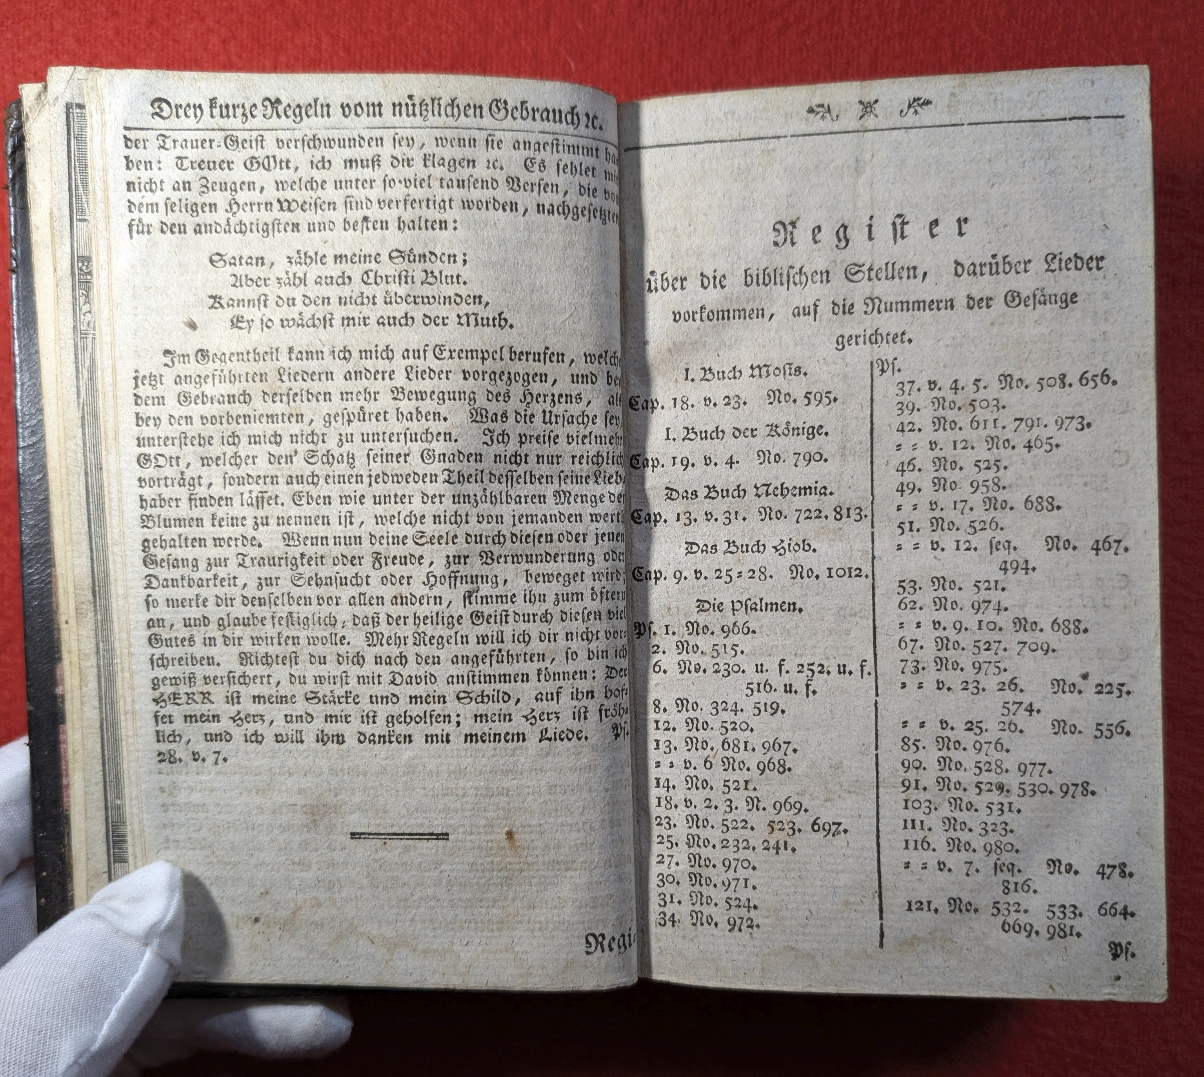 Drey kurze Regeln vom nützlichen Gebrauch ꝛc.
der Trauer-Geist verschwunden sey, wenn sie angestimmt ha-
ben: Treuer GOtt, ich muß dir klagen ꝛc. Es fehlet mir
nicht an Zeugen, welche unter so viel tausend Versen, die von
dem seligen Herrn Weisen sind verfertigt worden, nachgesetzten
für den andächtigsten und besten halten:
Satan, zähle meine Sünden;
Aber zähl auch Christi Blut.
Kannst du den nicht überwinden,
Ey so wächst mir auch der Muth.
Im Gegentheil kann ich mich auf Exempel berufen, welche
jetzt angeführten Liedern andere Lieder vorgezogen, und bey
dem Gebrauch derselben mehr Bewegung des Herzens, als
bey den vorbeniemten, gespüret haben. Was die Ursache sey,
unterstehe ich mich nicht zu untersuchen. Ich preise vielmehr
GOtt, welcher den Schatz seiner Gnaden nicht nur reichlich
vorträgt, sondern auch einen jedweden Theil desselben seine Lieb-
haber finden lässet. Eben wie unter der unzählbaren Menge der
Blumen keine zu nennen ist, welche nicht von jemanden wert
gehalten werde. Wenn nun deine Seele durch diesen oder jenen
Gesang zur Traurigkeit oder Freude, zur Verwunderung oder
Dankbarkeit, zur Sehnsucht oder Hoffnung, beweget wird;
so merke dir denselben vor allen andern, stimme ihn zum öftern
an, und glaube festiglich, daß der heilige Geist durch diesen viel
Gutes in dir wirken wolle. Mehr Regeln will ich dir nicht vor-
schreiben. Richtest du dich nach den angeführten, so bin ich
gewiß versichert, du wirst mit David anstimmen können: Der
HERR ist meine Stärke und mein Schild, auf ihn hof-
fet mein Herz, und mir ist geholfen; mein Herz ist fröh-
lich, und ich will ihm danken mit meinem Liede. Ps.
28. v. 7.
Regi-
Register
über die biblischen Stellen, darüber Lieder
vorkommen, auf die Nummern der Gesänge
gerichtet.
I. Buch Mosis.
Cap. 18. v. 23. No. 595.
I. Buch der Könige.
Cap. 19. v. 4. No. 790.
Das Buch Nehemia.
Cap. 13. v. 31. No. 722. 813.
Das Buch Hiob.
Cap. 9. v. 25-28. No. 1012.
Die Psalmen.
Ps. 1. No. 966.
2. No. 515.
6. No. 230. u. f. 252. u. f.
516. u. f.
8. No. 324. 519.
12. No. 520.
13. No. 681. 967.
- - v. 6 No. 968.
14. No. 521.
18. v. 2. 3. N. 969.
23. No. 522. 523. 697.
25. No. 232. 241.
27. No. 970.
30. No. 971.
31. No. 524.
34. No. 972.
Ps.
37. v. 4. 5. No. 508. 656.
39. No. 503.
42. No. 611. 791. 973.
- - v. 12. No. 465.
46. No. 525.
49. No. 958.
- - v. 17. No. 688.
51. No. 526.
- - v. 12. seq. No. 467.
494.
53. No. 521.
62. No. 974.
- - v. 9. 10. No. 688.
67. No. 527. 709.
73. No. 975.
- - v. 23. 26. No. 225.
574.
- - v. 25. 26. No. 556.
85. No. 976.
90. No. 528. 977.
91. No. 529. 530. 978.
103. No. 531.
111. No. 323.
116. No. 980.
- - v. 7. seq. No. 478.
816.
121. No. 532. 533. 664.
669. 981.
Ps.